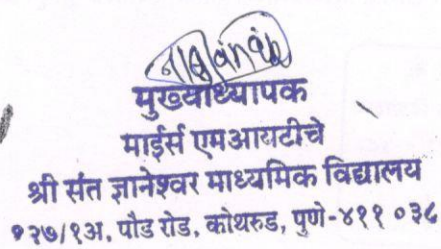 मुख्याध्यापक
माईर्स एमआयटीचे
श्री संत ज्ञानेश्वर माध्यमिक विद्यालय
१२७/१अ, पौड रोड, कोथरुड, पुणे-४११ ०३८